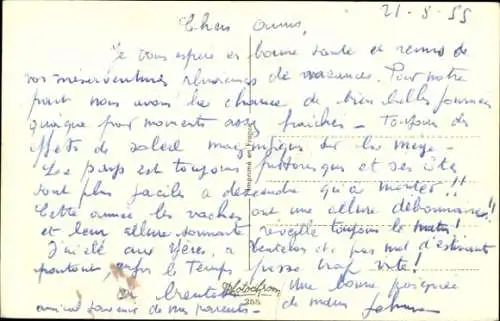 21-8-55
Chers amis,
Je vous espère en bonne santé et remis de
vos mésaventures de vacances. Pour notre
part nous avons la chance de bien belles journées
quoique par moments assez fraîches - Toujours des
effets de soleil magnifiques sur la
Le pays est toujours pittoresque et ses côtes
sont plus faciles à descendre qu'à monter !!
Cette année les vaches ont une allure débonnaire !!
et leur allure sonnante réveille toujours le matin !
J'ai été aux a pas mal d'estivants
partout enfin le Temps passe trop vite !
Une bonne poignée
amical souvenir de mes parents - de main
Imprimé en France
Photochrom